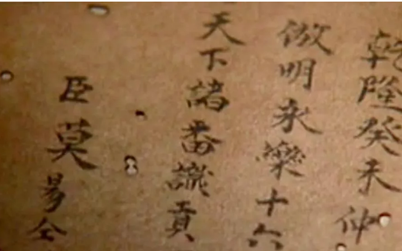 乾隆癸未仲
倣明永樂十六
天下諸番識貢
臣莫易仝